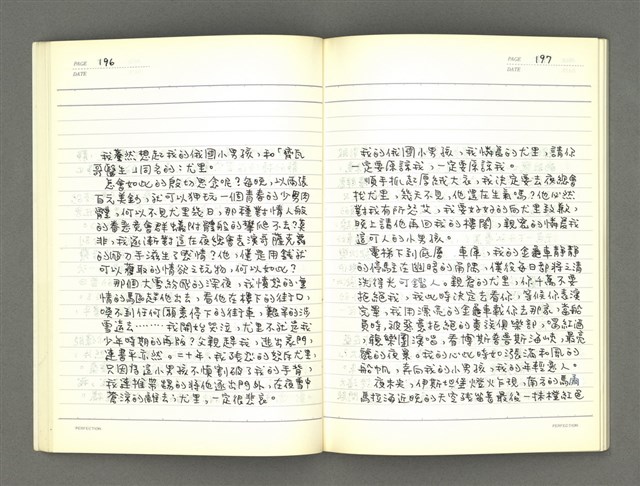 PAGE 196
DATE
我驀然想起我的俄國小男孩，和「齊瓦
哥醫生」同名的：尤里。
怎會如此的殷切思念呢？每晚，以兩張
百元美鈔，就可以狎玩一個青春的少男肉
體，何以不見尤里幾日，那種對情人般
的眷戀竟會群蟻附體般的攀爬不去？莫
非，我逐漸對這在夜總會表演奇薩克舞
的國刀手滋生了感情？他，僅是用錢就
可以獲取的情欲之玩物，何以如此？
那個大雪紛飛的深夜，我憤怒的
情的驅趕他出去，看他在樓下的街口，
喚不到任何願意停下的街車，艱苦的涉
雪遠去………我開始哭泣，尤里不就是我
少年時期的再版？父親趕我，逃出家門，
連書亦然。二十年，我陡然的怒斥尤里，
只因為這小男孩不慎割破了我的手臂，
我連推帶踢的將他逐出門外，在夜雪中
蒼涼的離去；尤里，一定很悲哀。
PERFECTION
PAGE 197
DATE
我的俄國小男孩，我憐愛的尤里，請你
一定要原諒我，一定要原諒我。
順手抓起厚絨大衣，我決定要去夜總會
找尤里，幾天不見，他還在生氣嗎？他必然
對我有所怨艾，我要好好的向尤里致歉，
晚上請他再回我的樓閣，親密的憐愛我
這可人的小男孩。
電梯下到底層 車庫，我的金龜車靜靜
的停駐在幽暗的角隅，僕役每日都將之清
洗得光可鑑人。親愛的尤里，你千萬不要
拒絕我，我此時決定去看你，等候你表演
完畢，我用漂亮的金龜車載你去那家，當船
員時，被惡意拒絕的貴族俱樂部，喝紅酒
，聽樂團演唱，看博斯普魯斯海峽，最亮
麗的夜景。我的心此時如漲滿和風的
船帆，奔向我的小男孩，我的年輕戀人。
夜未央，伊斯坦堡燈火下視，南方的馬
馬拉海近晚的天空殘留著最後一抹橙紅色
PERFECTION